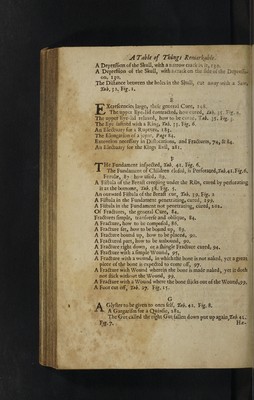 A Table of Things Remarkable.
A Depression of the Skull, with a narrow crack in it, 130.
A Depression of the Skull, with a crack on the side of the Depression. 130.
The Distance between the holes in the Skull, cut away with a Saw,
Tab. 31, Fig. 1.
E
Excrescencies large, their general Cure, 126.
The upper Eye-lid contracted, how cured, Tab. 35. Fig.
The upper Eye-lid relaxed, how to be cured, Tab. 35. Fig. 3.
The Eye issued with a Ring, Tab. 33. Fig. 8.
An Electuary for a Rupture, 185.
The Elongation of a tapet, Page 24.
Extension necessary in Dislocations, and Fractures, 79, & 84.
An Electuary for the Kings Evil, 281.
F
THe Fundament injected, Tab. 42. Fig. 6.
The Fundament of Children closed, is Perforated, Tab. 42. Fig.
Ferulæ, 87. how used, 89.
A Fistula of the Breast creeping under the Ribs, cured by perforating
it at the bottome, Tab. 38, Fig. 5.
An outward Fistula of the Breast cut, Tab. 39. Fig. 2
A Fistula in the Fundament penetrating, cured, 199.
A Fistula in the Fundament not penetrating, cured, 202.
Of Fractures, the general Cure, 84.
Fractures simple, transverse and oblique, 84.
A Fracture, how to be composed, 86.
A Fracture set, how to be bound up, 89.
A Fracture bound up, how to be placed, 90.
A Fractured part, how to be unbound, 90.
A Fracture right down, or a simple Fracture cured, 94.
A Fracture with a simple Wound, 95.
A Fracture with a wound, in which the bone is not naked, yet a great
piece of the bone is expected to come off, 97.
A Fracture with Wound wherein the bone is made naked, yet it doth
not stick without the Wound, 99.
A Fracture with a Wound where the bone sticks out of the Wound, 99.
A Foot cut off, Tab. 27. Fig. 15.
G
A Glyster to be given to ones self, Tab. 42. Fig. 8.
A Gargarism for a Quinsie, 162.
The Gut called the right Gut fallen down put up again, Tab. 42.
Fig. 7.